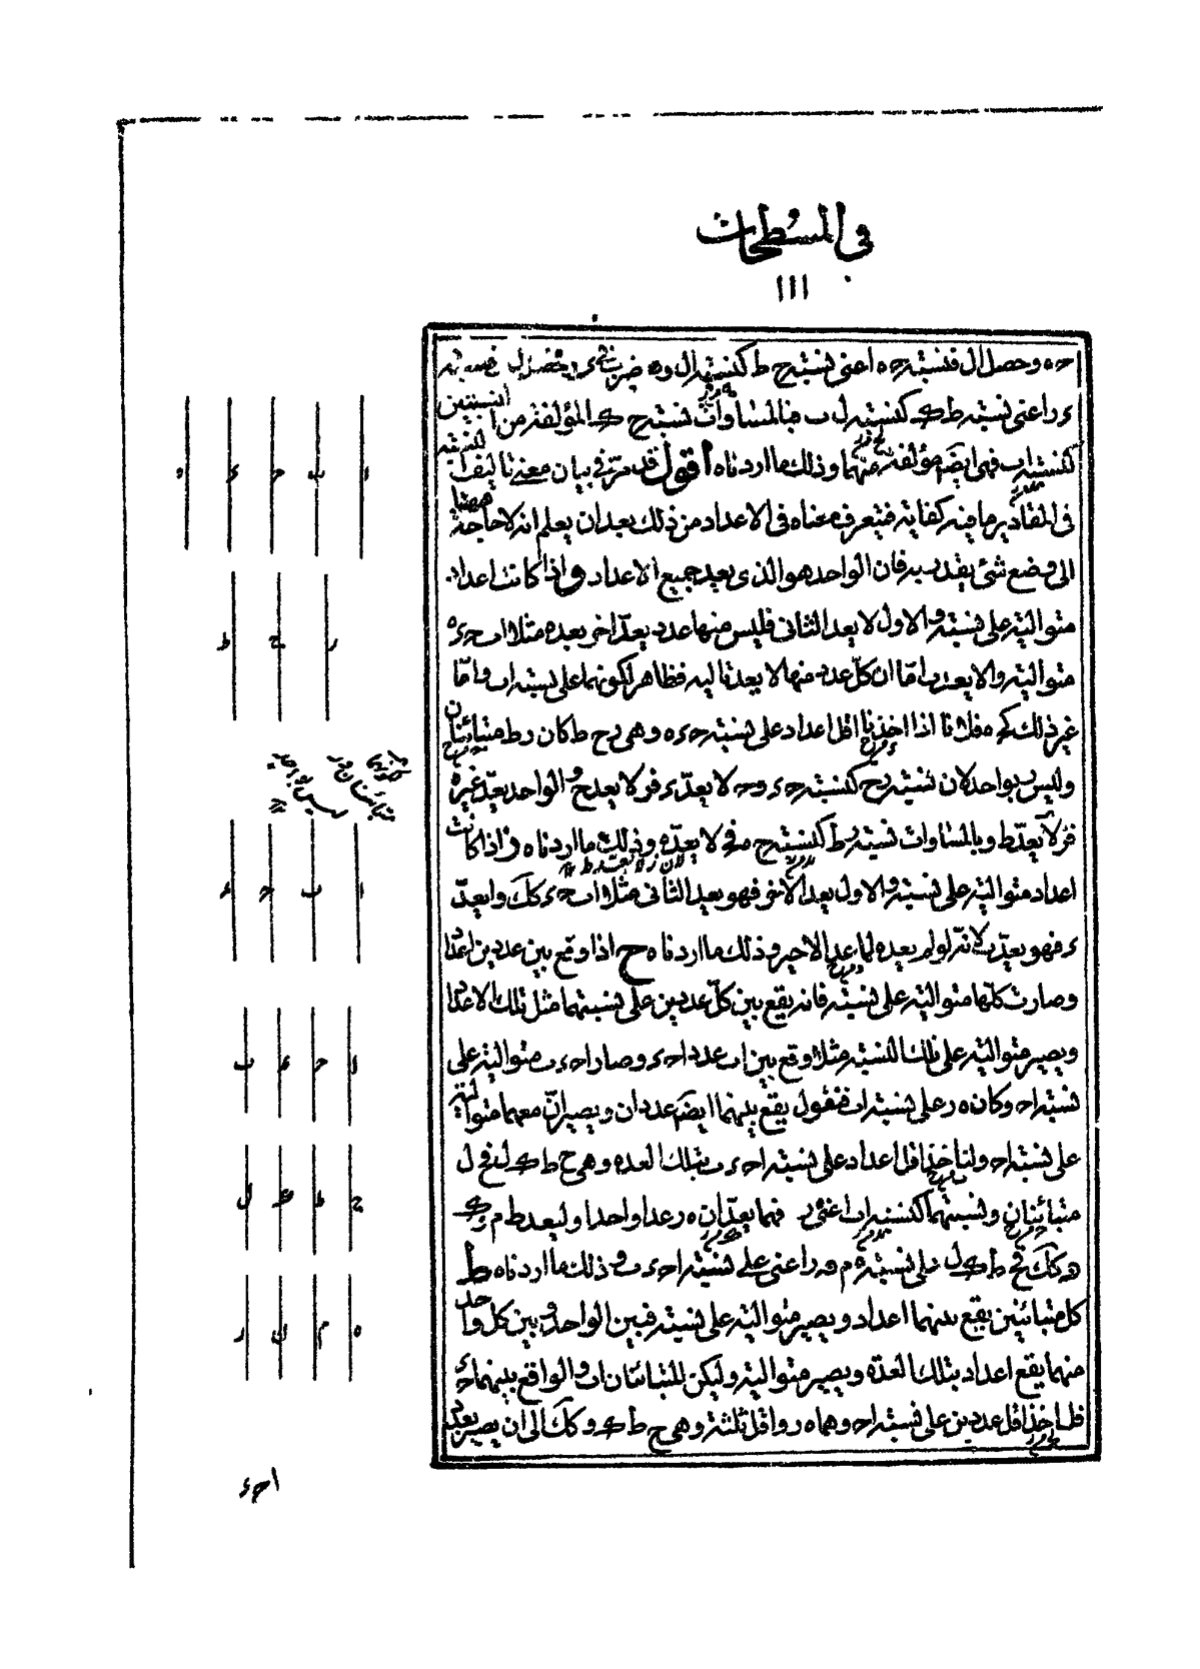 في المسطحات
١١١
ح ه وحصل ل فنسبة ح ه اعنى نسبة ح ط كنسبة ال و ه ضرب فى
ء ر اعنى نسبة ط ك كنسبة ل ب فبالمساوات نسبة ح ك المؤلفة من النسبتين
كنسبة ا ب فهى ايضا مؤلفة منهما وذلك ما اردناه اقول قد مر فى بيان معنى تاليف النسبة
فى المقادير ما فيه كفاية فتعرف معناه فى الاعداد من ذلك بعد ان يعلم انه لا حاجة ههنا
الى وضع شئ يقدر به فان الواحد هو الذى يعد جميع الاعداد و اذا كانت اعداد
متوالية على نسبة والاول لا يعد الثانى فليس منها عدد يعد اخر بعده مثلا ا ب ح ء ه
متوالية و ا لا يعد ب اما ان كل عدد منها لا يعد تاليه فظاهر لكونها على نسبة ا ب واما
غير ذلك فلانا اذا اخذنا اقل اعداد على نسبة ح ء ه وهى ر ح ط كان ر ط متبائنان
وليس ر بواحد لان نسبة ر ح كنسبة ح ء و ح لا يعد ء فر لا يعد ح والواحد يعد غيره
فر لا يعد ط وبالمساوات نسبة ر ط كنسبة ح ه فح لا يعد ه وذلك ما اردناه ز اذا كانت
اعداد متوالية على نسبة والاول يعد الاخر فهو يعد الثانى مثلا ا ب ح ء كك و ا يعد
ء فهو يعد ب لانه لو لم يعده لما عد الاخير وذلك ما اردناه ح اذا وقع بين عددين اعداد
وصارت كلها متوالية على نسبة فانه يقع بين كل عددين على نسبتهما مثل تلك الاعداد
ويصير متوالية على تلك النسبة مثلا وقع بين ا ب عددا ح ء وصار ا ح ء ب متوالية على
نسبة ا ح وكان ه ر على نسبة ا ب فنقول يقع بينهما ايضا عددان ويصيران معهما متوالية
على نسبة ا ح ولنا خذ اقل اعداد على نسبة ا ح ء ب بتلك العدة وهى ح ط ك ل فح ل
متبائنان ونسبتهما كنسبة ا ب اعنى ه ر فهما يعدان ه ر عدا واحدا وليعد ط م و ك
ن كك فح ط ك ل على نسبة ه م ن ر اعنى على نسبة ا ح ء ب وذلك ما اردناه ط
كل متبائنين يقع بينهما اعداد ويصير متوالية على نسبة فبين الواحد وبين كل واحد
منهما يقع اعداد بتلك العدة ويصير متوالية وليكن المتبائنان ا ب والواقع بينهما ح ء
فلناخذ اقل عددين على نسبة ا ح وهما ه ر واقل ثلثة وهى ح ط ك وكك الى ان يصير بعدة
ا ح ء
ا ب ح ء ه
ر ح ط
ا ب ح ء
ا ح ء ب
ح ط ك ل
ه م ن ر